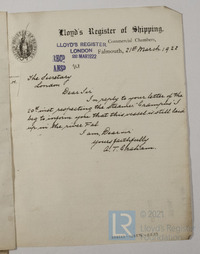 Lloyd's Register of Shipping,
Commercial Chambers,
Falmouth, 21st March 1922
LLOYD'S REGISTER
LONDON
MAR 1922
The Secretary
London
Dear Sir
In reply to your letter of the
20th inst, respecting the Steamer
beg to inform you that this vessel is still laid
up in the river Fal.
I am, Dear Sir
Yours faithfully
LR